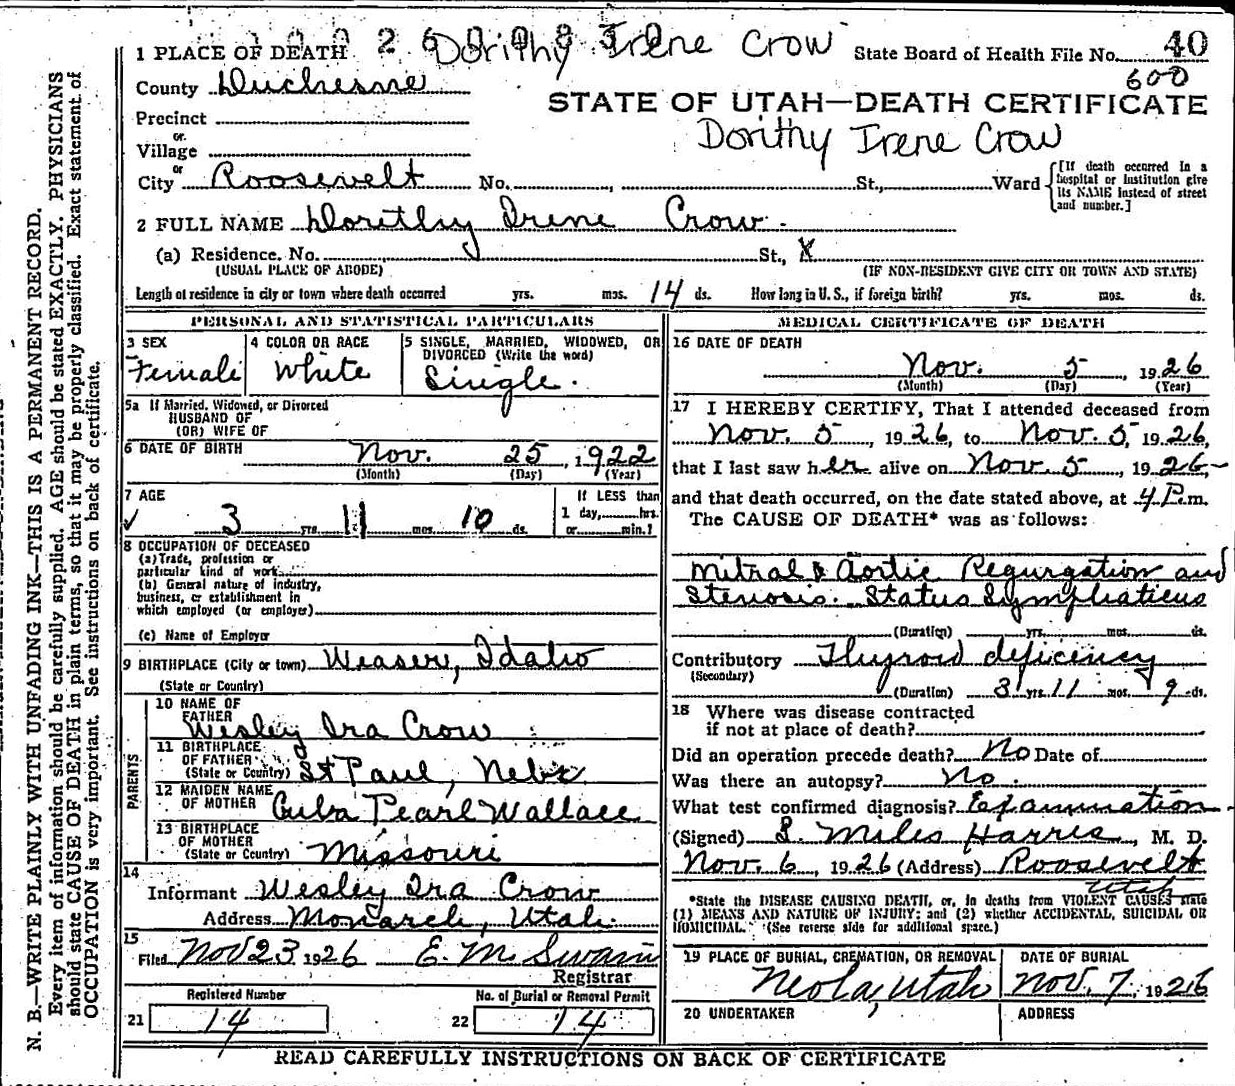 1 PLACE OF DEATH Dorithy Irene Crow State Board of Health File No. 40
County Duchesne 600
STATE OF UTAH—DEATH CERTIFICATE
Precinct
Dorithy Irene Crow
or
Village
or
City Roosevelt No. , St., Ward [If death occurred in a hospital or institution give its NAME instead of street and number.]
2 FULL NAME Dorithy Irene Crow.
(a) Residence. No. St., X
(USUAL PLACE OF ABODE) (IF NON-RESIDENT GIVE CITY OR TOWN AND STATE)
Length of residence in city or town where death occurred yrs. mos. 14 ds. How long in U. S., if foreign birth? yrs. mos. ds.
PERSONAL AND STATISTICAL PARTICULARS
3 SEX 4 COLOR OR RACE 5 SINGLE, MARRIED, WIDOWED, OR
DIVORCED (Write the word)
Female White Single.
5a If Married, Widowed, or Divorced
HUSBAND OF
(OR) WIFE OF
6 DATE OF BIRTH Nov. 25, 1922
(Month) (Day) (Year)
7 AGE If LESS than
1 day, hrs.
✓ 3 yrs. 11 mos. 10 ds. or min.?
8 OCCUPATION OF DECEASED
(a) Trade, profession or
particular kind of work
(b) General nature of industry,
business, or establishment in
which employed (or employer)
(c) Name of Employer
9 BIRTHPLACE (City or town) Weaser, Idaho
(State or Country)
PARENTS
10 NAME OF
FATHER
Wesley Ira Crow
11 BIRTHPLACE
OF FATHER
(State or Country) St Paul, Nebr
12 MAIDEN NAME
OF MOTHER Cuba Pearl Wallace
13 BIRTHPLACE
OF MOTHER
(State or Country) Missouri
14
Informant Wesley Ira Crow
Address Monarch, Utah.
15
Filed Nov 23 1926 E. M. Swain
Registrar
Registered Number No. of Burial or Removal Permit
21 14 22 14
MEDICAL CERTIFICATE OF DEATH
16 DATE OF DEATH
Nov. 5, 1926
(Month) (Day) (Year)
17 I HEREBY CERTIFY, That I attended deceased from
Nov. 5, 1926, to Nov. 5, 1926,
that I last saw her alive on Nov. 5, 1926,
and that death occurred, on the date stated above, at 4 P.m.
The CAUSE OF DEATH* was as follows:
Mitral & Aortic Regurgation and
Stenosis. Status Symphaticus
(Duration) yrs. mos. ds.
Contributory Thyroid deficincy
(Secondary)
(Duration) 3 yrs. 11 mos. 9 ds.
18 Where was disease contracted
if not at place of death?
Did an operation precede death? No Date of
Was there an autopsy? No.
What test confirmed diagnosis? Examination
(Signed) L. Miles Harris, M. D.
Nov. 6, 1926 (Address) Roosevelt
Utah
*State the DISEASE CAUSING DEATH, or, in deaths from VIOLENT CAUSES state
(1) MEANS AND NATURE OF INJURY; and (2) whether ACCIDENTAL, SUICIDAL OR
HOMICIDAL. (See reverse side for additional space.)
19 PLACE OF BURIAL, CREMATION, OR REMOVAL DATE OF BURIAL
Neola, Utah Nov. 7, 1926
20 UNDERTAKER ADDRESS
READ CAREFULLY INSTRUCTIONS ON BACK OF CERTIFICATE
N. B.—WRITE PLAINLY WITH UNFADING INK—THIS IS A PERMANENT RECORD.
Every item of information should be carefully supplied. AGE should be stated EXACTLY. PHYSICIANS
should state CAUSE OF DEATH in plain terms, so that it may be properly classified. Exact statement of
OCCUPATION is very important. See instructions on back of certificate.